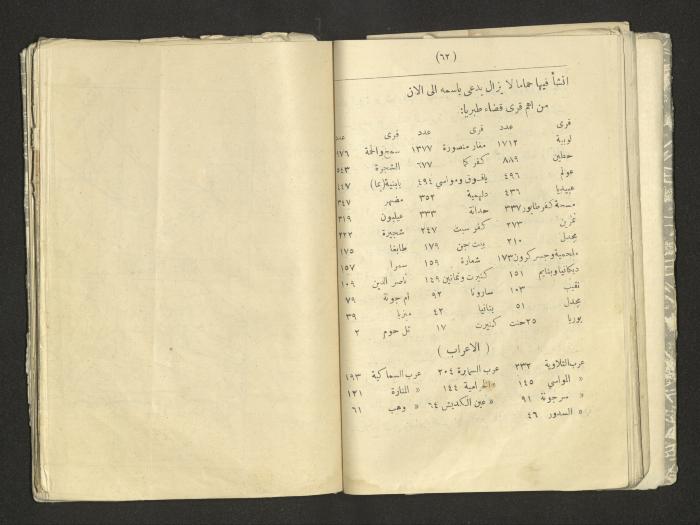 (٦٢)
انشأ فيها حماما لا يزال يدعى باسمه الى الان
من اهم قرى قضاء طبريا:
قرى عدد قرى عدد قرى عدد
لوبية ١٧١٢ مغار منصورة ١٣٧٧ سمخ والحمة ٩٧٦
حطين ٨٨٩ كفر كما ٦٧٧ الشجرة ٥٤٣
عولم ٤٩٦ ياقوق ومواسي ٤٩٤ يابنية (يما) ٤٤٧
عبيديا ٤٣٦ دلهمية ٣٥٢ مضهر ٣٤٧
مسحة كفر طابور ٣٣٧ حدانة ٣٣٣ عيليون ٣١٩
نمرين ٢٧٣ كفر سبت ٢٤٧ شجيرة ٢٢٢
مجدل ٢١٠ بيت جن ١٧٩ طابغا ١٧٥
ملحمية وجسر كرون ١٧٣ شعارة ١٥٩ سمرا ١٥٧
دكانيا وبنايم ١٥١ كنيرت ونمانين ١٤٩ ناصر الدين ١٠٩
نقيب ١٠٣ سارونا ٩٢ ام جونة ٧٩
مجدل ٥١ بتانيا ٤٢ منزيا ٣٩
بوريا ٢٥ حنت كنيرت ١٧ تل حوم ٢
( الاعراب )
عرب التلاوية ٣٣٢ عرب السمايرة ٢٠٤ عرب السماكية ١٩٣
« المواسي ١٤٥ « الخرامية ١٤٤ « المنارة ١٢١
« سرجونة ٩١ « عين الكديش ٦٤ « وهب ٦١
« السدور ٤٦